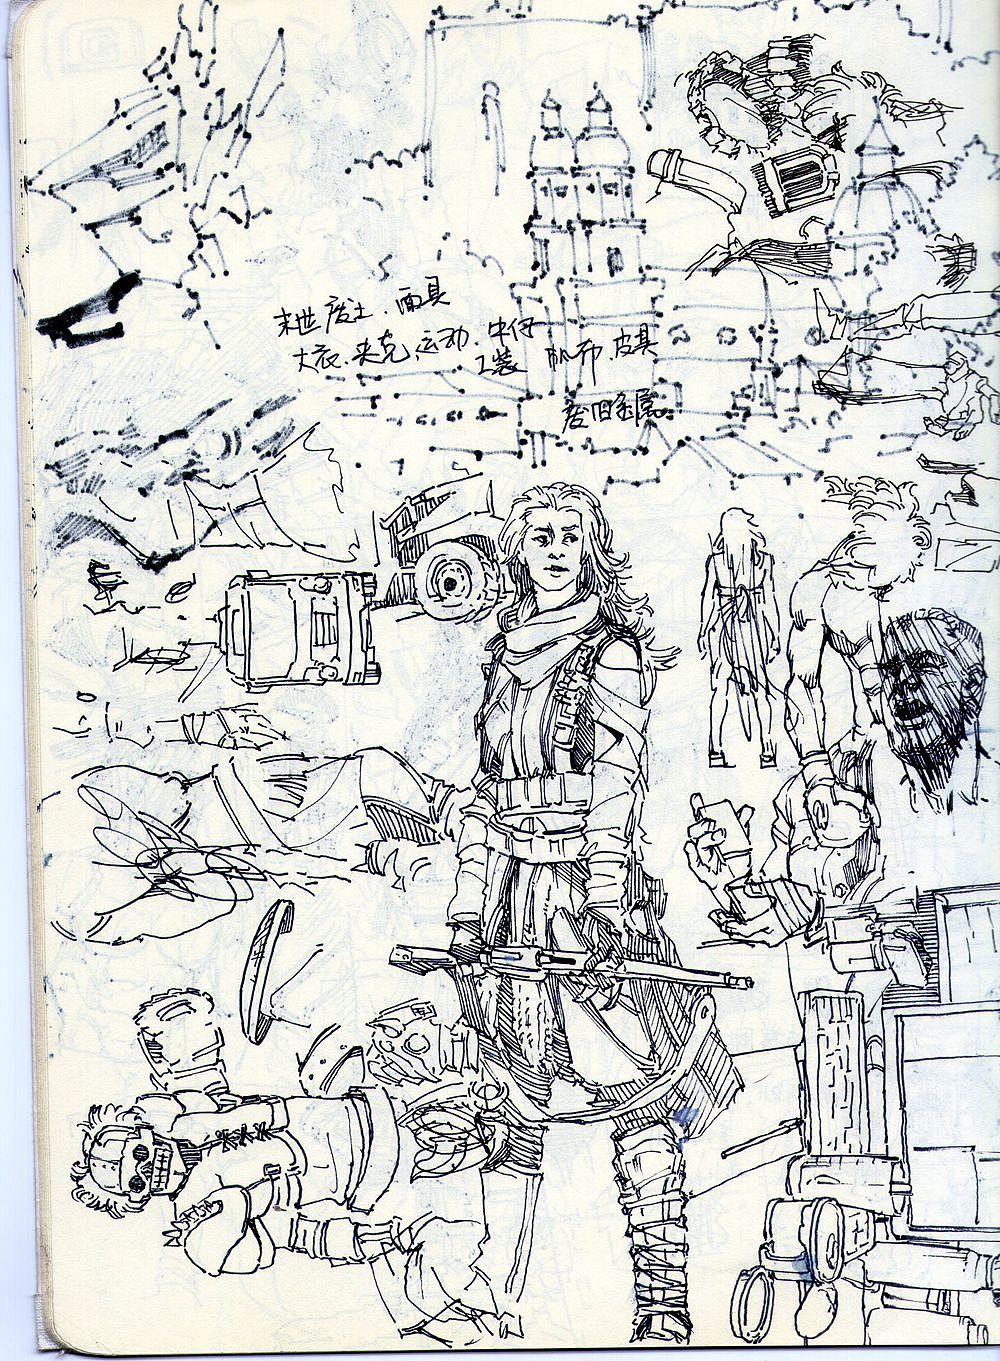 末世废土.面具
大衣.夹克.运动.牛仔
工装 帆布.皮具
废旧金属